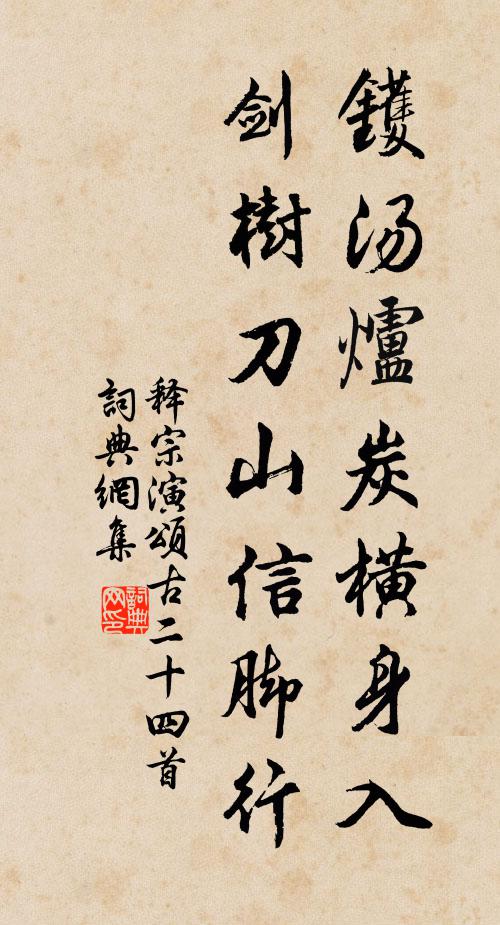 鑊汤爐炭橫身入
劍樹刀山信脚行
释宗演頌古二十四首
詞典網集
詞典網印